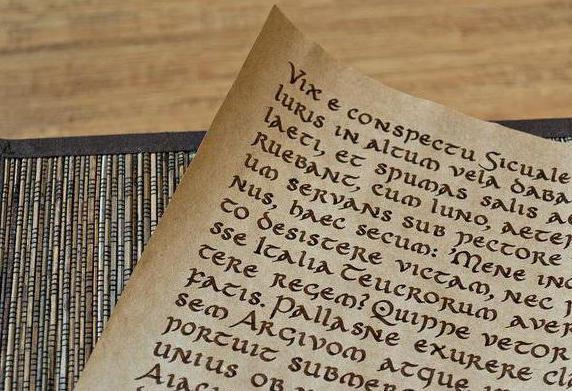 Vix e conspectu Sicuale
luris in altum vela daba
laeti, et spumas salis ae
ruebant, cum luno, aeter
um servans sub pectore
nus, haec secum: Mene inc
to desistere victam, nec p
sse Italia Teucrorum aver
tere regem? Quippe vetor
fatis. Pallasne exurere cla
sem Argivom atque
portuit submer
unius ob
Aiaci